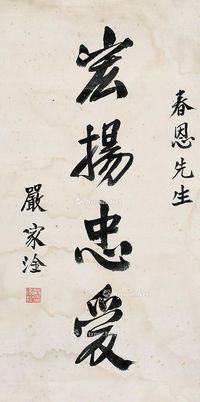 春恩先生
宏揚忠愛
嚴家淦